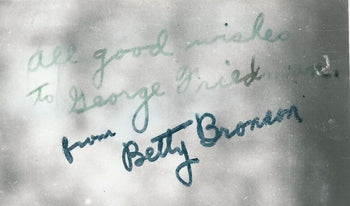 All good wishes
To George
from
Betty Bronson